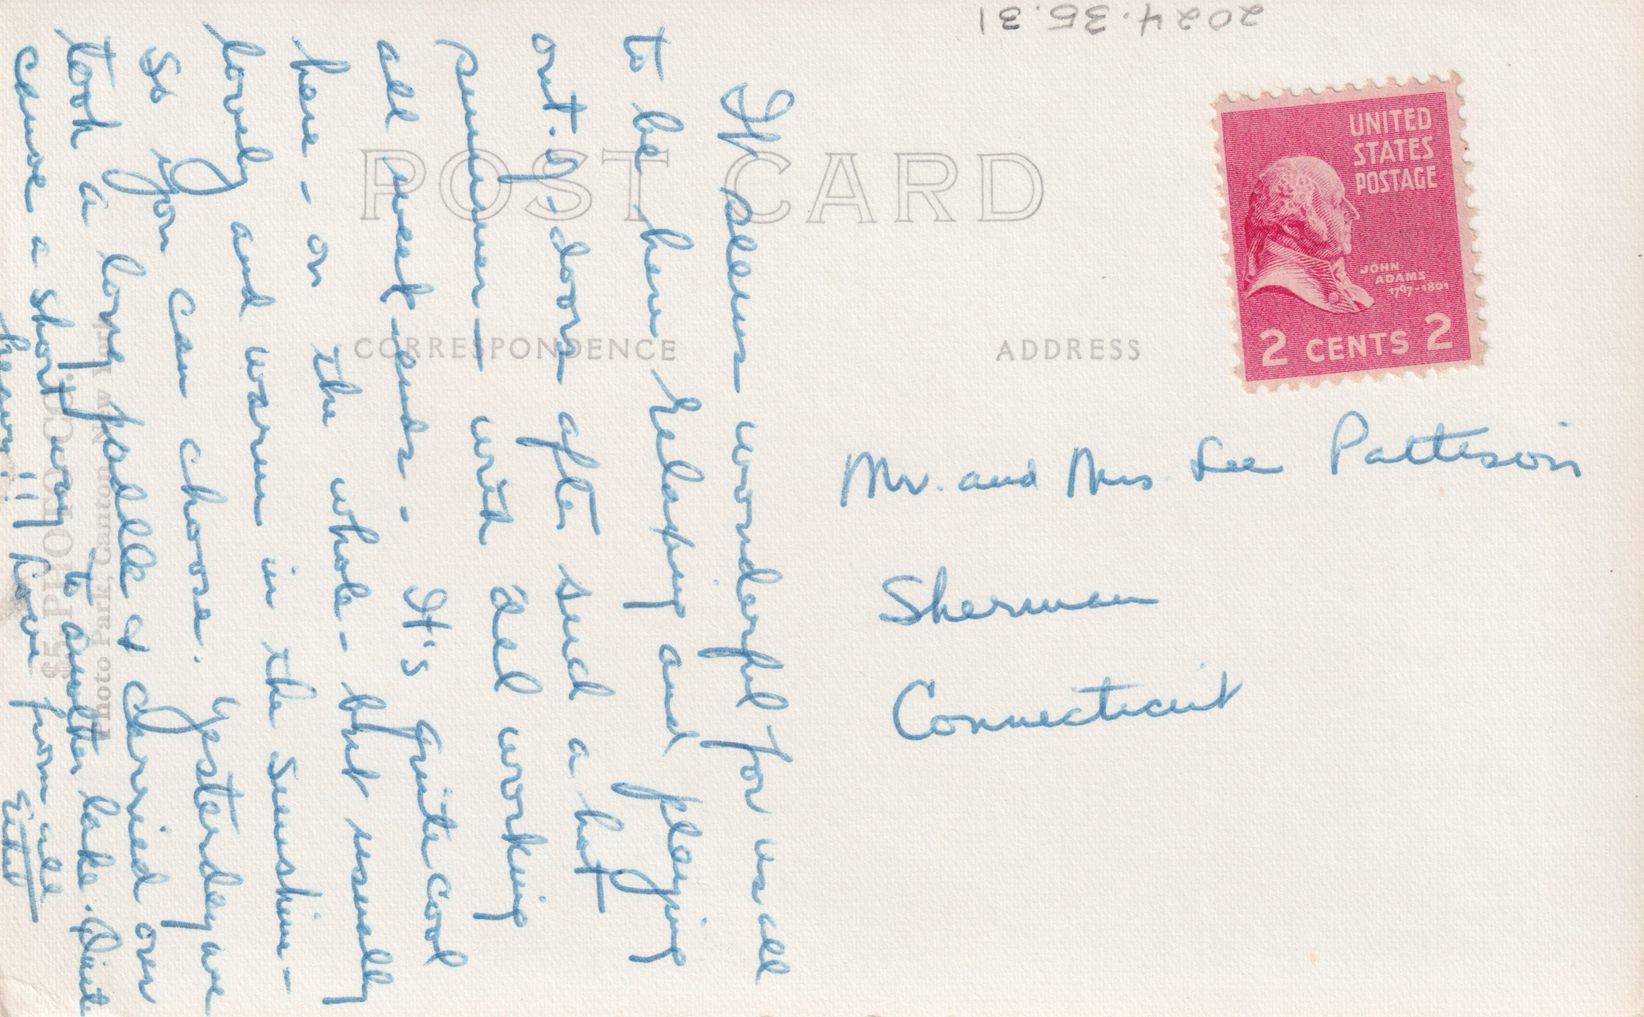 2024.35.31
POST CARD
CORRESPONDENCE
ADDRESS
UNITED
STATES
POSTAGE
JOHN
ADAMS
1797-1801
2 CENTS 2
It seems wonderful for us all
to be here relaxing and playing
out-of-doors after such a hot
summer - with Del working
all week ends. It's quite cool
here - on the whole - but usually
lovely and warm in the sunshine -
so you can choose. Yesterday we
took a long paddle & carried over
canoe a short way to another lake. Quite
heavy!!! Love from all
Ethel
Mr. and Mrs. Lee Pattison
Sherman
Connecticut
$5 PHOTO CO.
Photo Park, Canton, New York